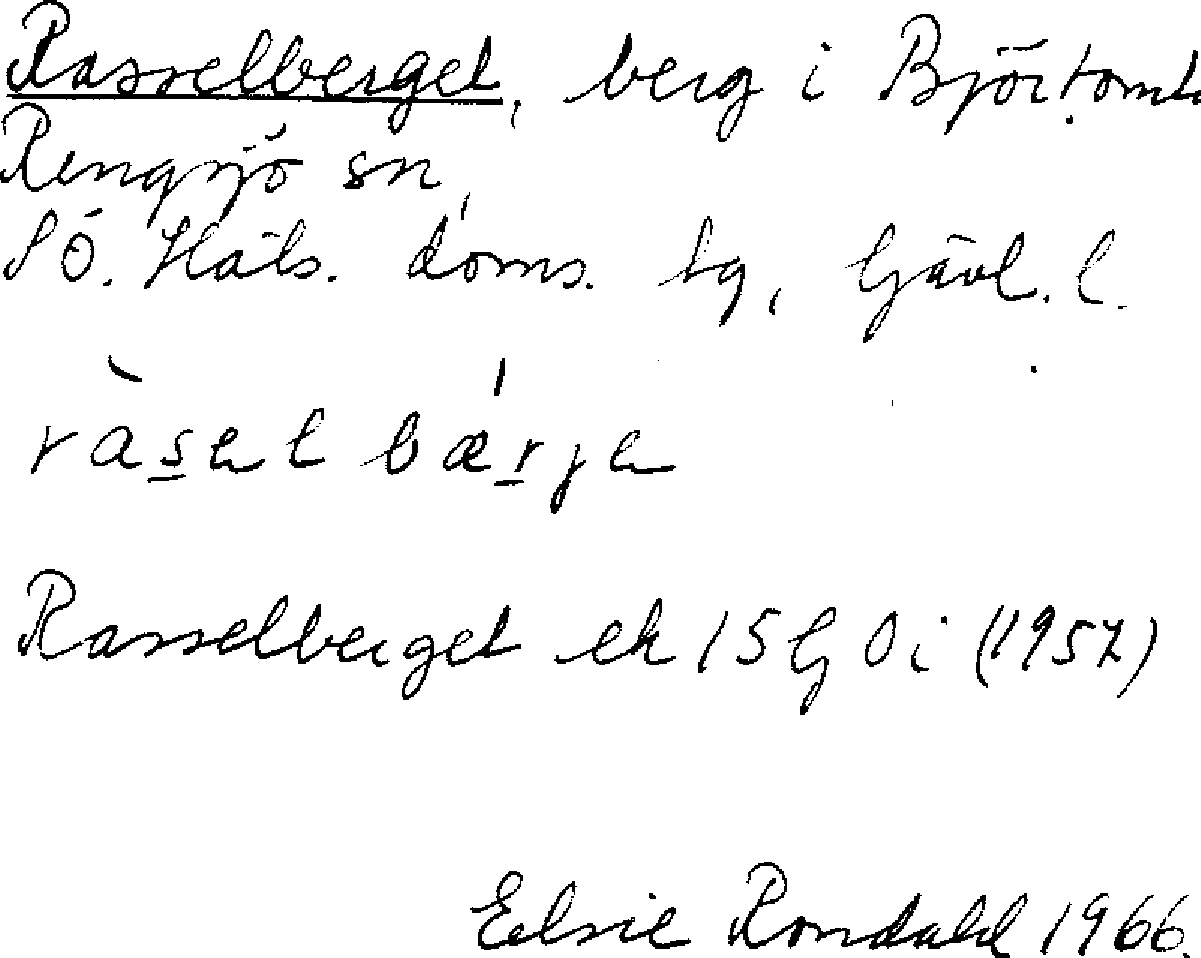 Rasselberget, berg i Björtomt
Rengsjö sn,
SÖ. Häls. doms. tg, Gävl. l.
Rasselberget ek 15G 0i (1957)
Elsie Rondahl 1966.